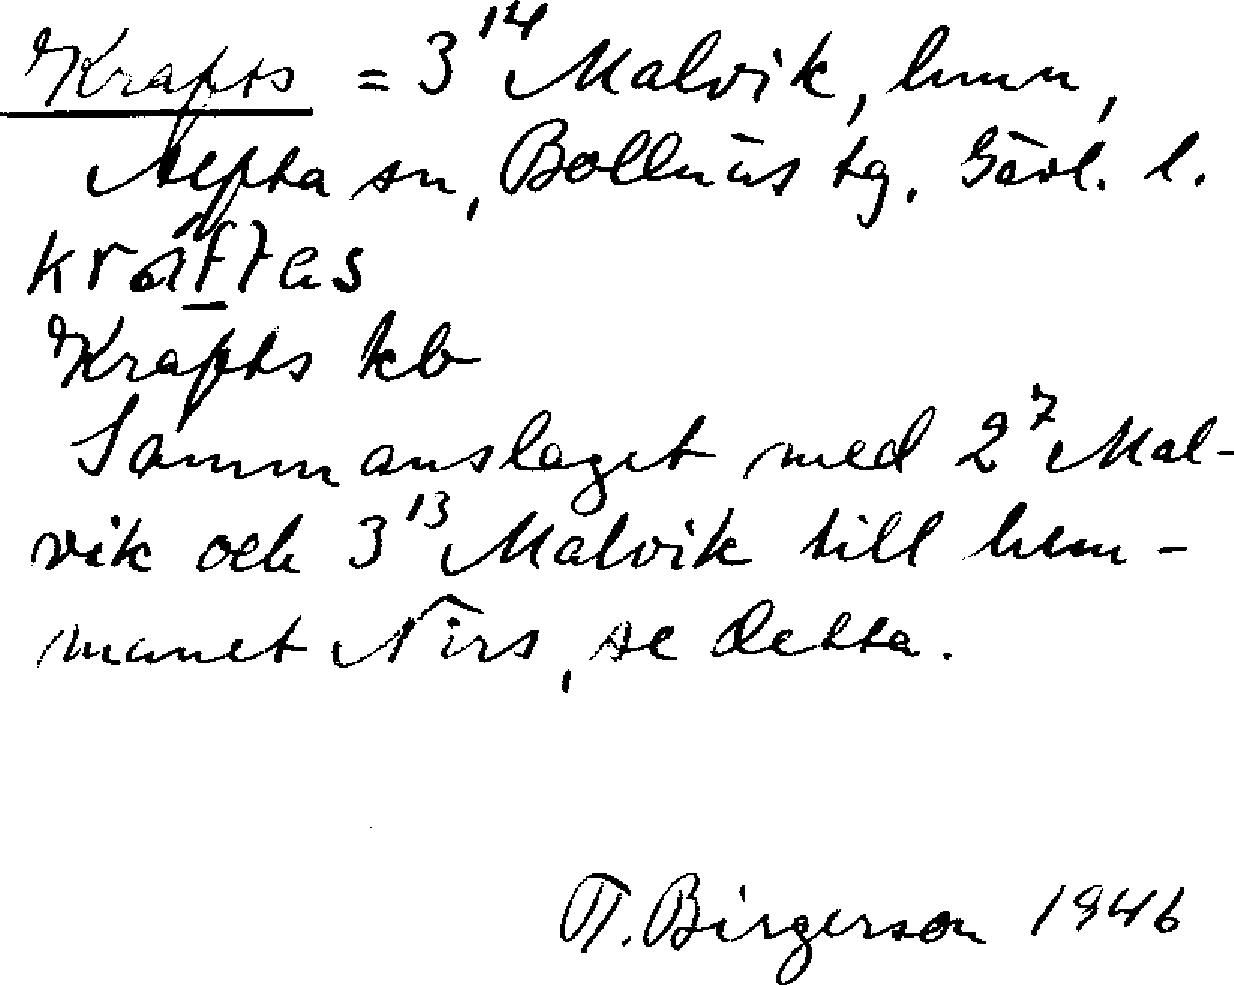 Krafts = 3¹⁴ Malvik, hmn,
Alfta sn, Bollnäs tg. Gävl. l.
kraftas
Krafts kb
Sammanslaget med 2⁷ Mal-
vik och 3¹³ Malvik till hem-
manet Nirs, se detta.
T. Birgerson 1946